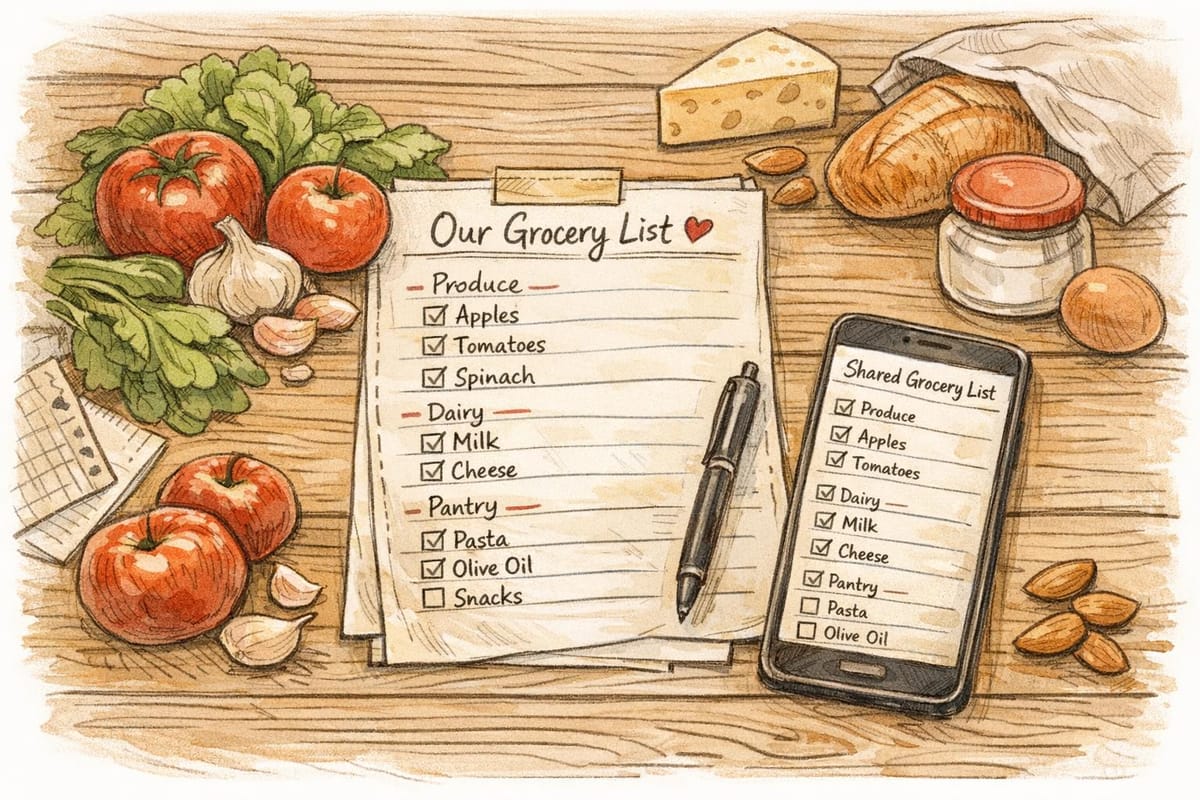 Our Grocery List
Produce
Apples
Tomatoes
Spinach
Dairy
Milk
Cheese
Pantry
Pasta
Olive Oil
Snacks
Shared Grocery List
Produce
Apples
Tomatoes
Dairy
Milk
Cheese
Pantry
Pasta
Olive Oil